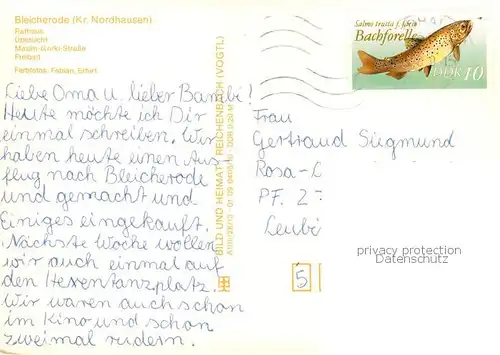 Bleicherode (Kr. Nordhausen)
Rathaus
Übersicht
Maxim-Gorki-Straße
Freibad
Farbfotos: Fabian, Erfurt
Liebe Oma u. lieber Bambi!
Heute möchte ich Dir
einmal schreiben. Wir
haben heute einen Aus-
flug nach Bleicherode
und gemacht und
Einiges eingekauft.
Nächste Woche wollen
wir auch einmal auf
den Hexentanzplatz.
Wir waren auch schon
im Kino und schon
zweimal rudern.
BILD UND HEIMAT REICHENBACH (VOGTL)
Salmo trutta f. fario
Bachforelle
DDR 10
Frau
Gertraud Siegmund
Rosa-
PF. 2
Leub
5
privacy protection
Datenschutz